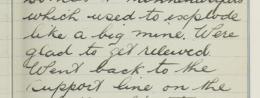 which used to explode
like a big mine. Were
glad to get relieved
Went back to the
support line on the